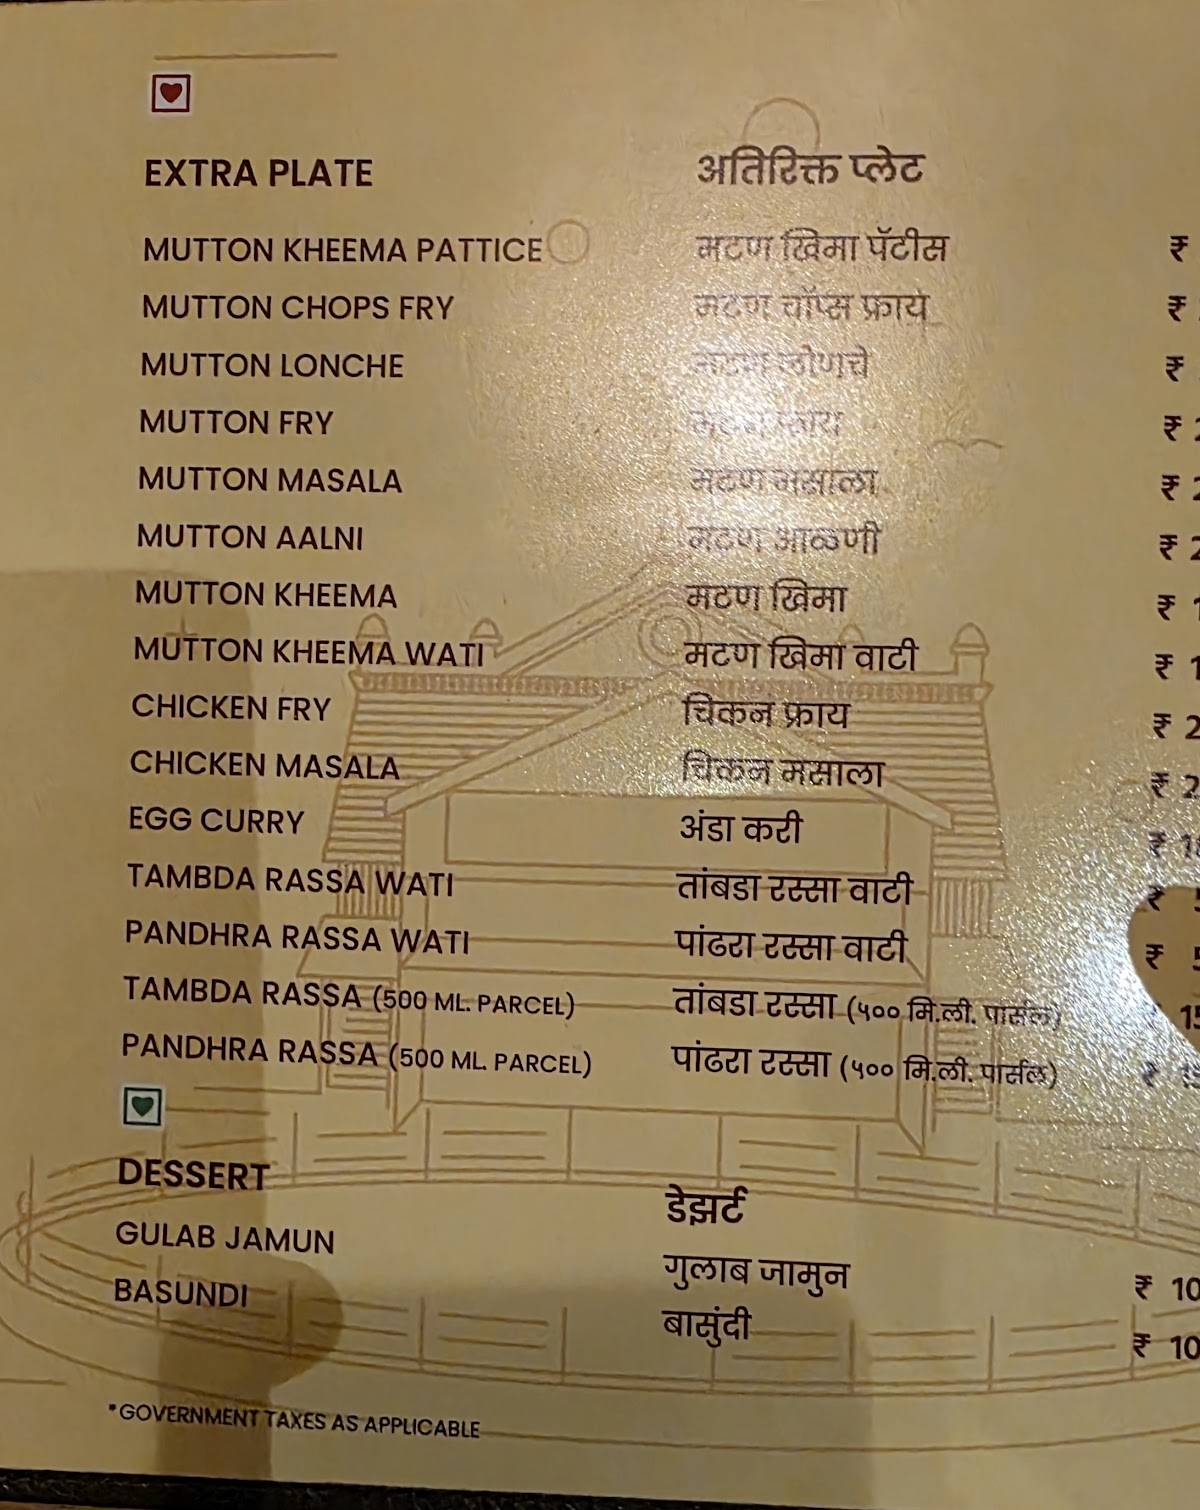 EXTRA PLATE अतिरिक्त प्लेट
MUTTON KHEEMA PATTICE मटण खिमा पॅटीस ₹
MUTTON CHOPS FRY मटण चॉप्स फ्राय ₹
MUTTON LONCHE मटण लोणचे ₹
MUTTON FRY मटण फ्राय ₹
MUTTON MASALA मटण मसाला ₹
MUTTON AALNI मटण आळणी ₹ 2
MUTTON KHEEMA मटण खिमा ₹ 1
MUTTON KHEEMA WATI मटण खिमा वाटी ₹ 1
CHICKEN FRY चिकन फ्राय ₹ 2
CHICKEN MASALA चिकन मसाला ₹ 2
EGG CURRY अंडा करी ₹
TAMBDA RASSA WATI तांबडा रस्सा वाटी ₹
PANDHRA RASSA WATI पांढरा रस्सा वाटी ₹
TAMBDA RASSA (500 ML. PARCEL) तांबडा रस्सा (५०० मि.ली. पार्सल)
PANDHRA RASSA (500 ML. PARCEL) पांढरा रस्सा (५०० मि.ली. पार्सल) ₹
DESSERT डेझर्ट
GULAB JAMUN गुलाब जामुन ₹ 10
BASUNDI बासुंदी ₹ 10
*GOVERNMENT TAXES AS APPLICABLE